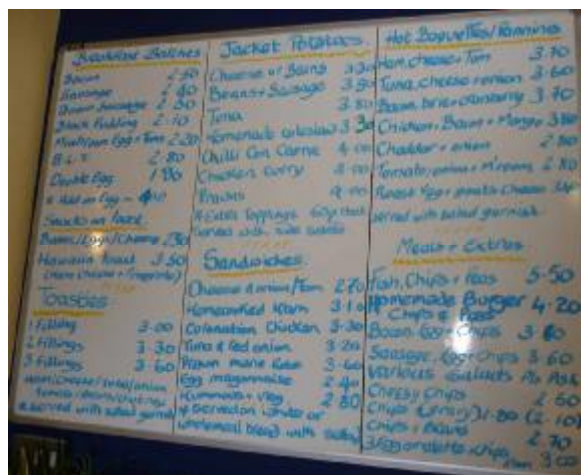 Breakfast Batches
Bacon 2.50
Sausage 2.40
Black Pudding 2.10
Mushroom, Egg + Tom 2.30
B.L.T 2.80
Double Egg
Snacks on Toast
Beans/Eggs/Cheese 2.50
Hawaiian Toast 3.50
(Ham Cheese + Pineapple)
Toasties
1 filling 3.00
2 fillings 3.30
3 fillings 3.60
Ham/Cheese/tuna/onion
served with salad garnish
Jacket Potatoes
Cheese or Beans
Beans + Sausage
Tuna
Homemade coleslaw 3.30
Chilli Con Carne 4.00
Chicken Curry 4.00
Prawns 4.00
Extra Toppings 60p
served with side salad
Sandwiches
Cheese + onion/Tom 2.70
Homecooked Ham 3.10
Coronation Chicken 3.30
Tuna & Red onion 3.20
Prawn marie Rose 3.60
Egg mayonnaise 2.40
Hummous + Veg 2.80
Served on white or
wholemeal bread with salad
Hot Baguettes/Paninis
Ham, cheese + Tom 3.70
Tuna, cheese + onion 3.60
Bacon, brie + cranberry 3.70
Chicken + Bacon + Mango 3.80
Cheddar + onion 2.80
Tomato, onion + M'room 2.80
served with salad garnish
Meals + Extras
Fish, Chips + Peas 5.50
Homemade Burger 4.20
Chips & Peas
Bacon, Egg + Chips 3.60
Sausage, Egg + Chips 3.60
Various Salads As Ask
Cheesy Chips 2.50
Chips + Beans 2.70
3 Egg omelette + chips 3.00